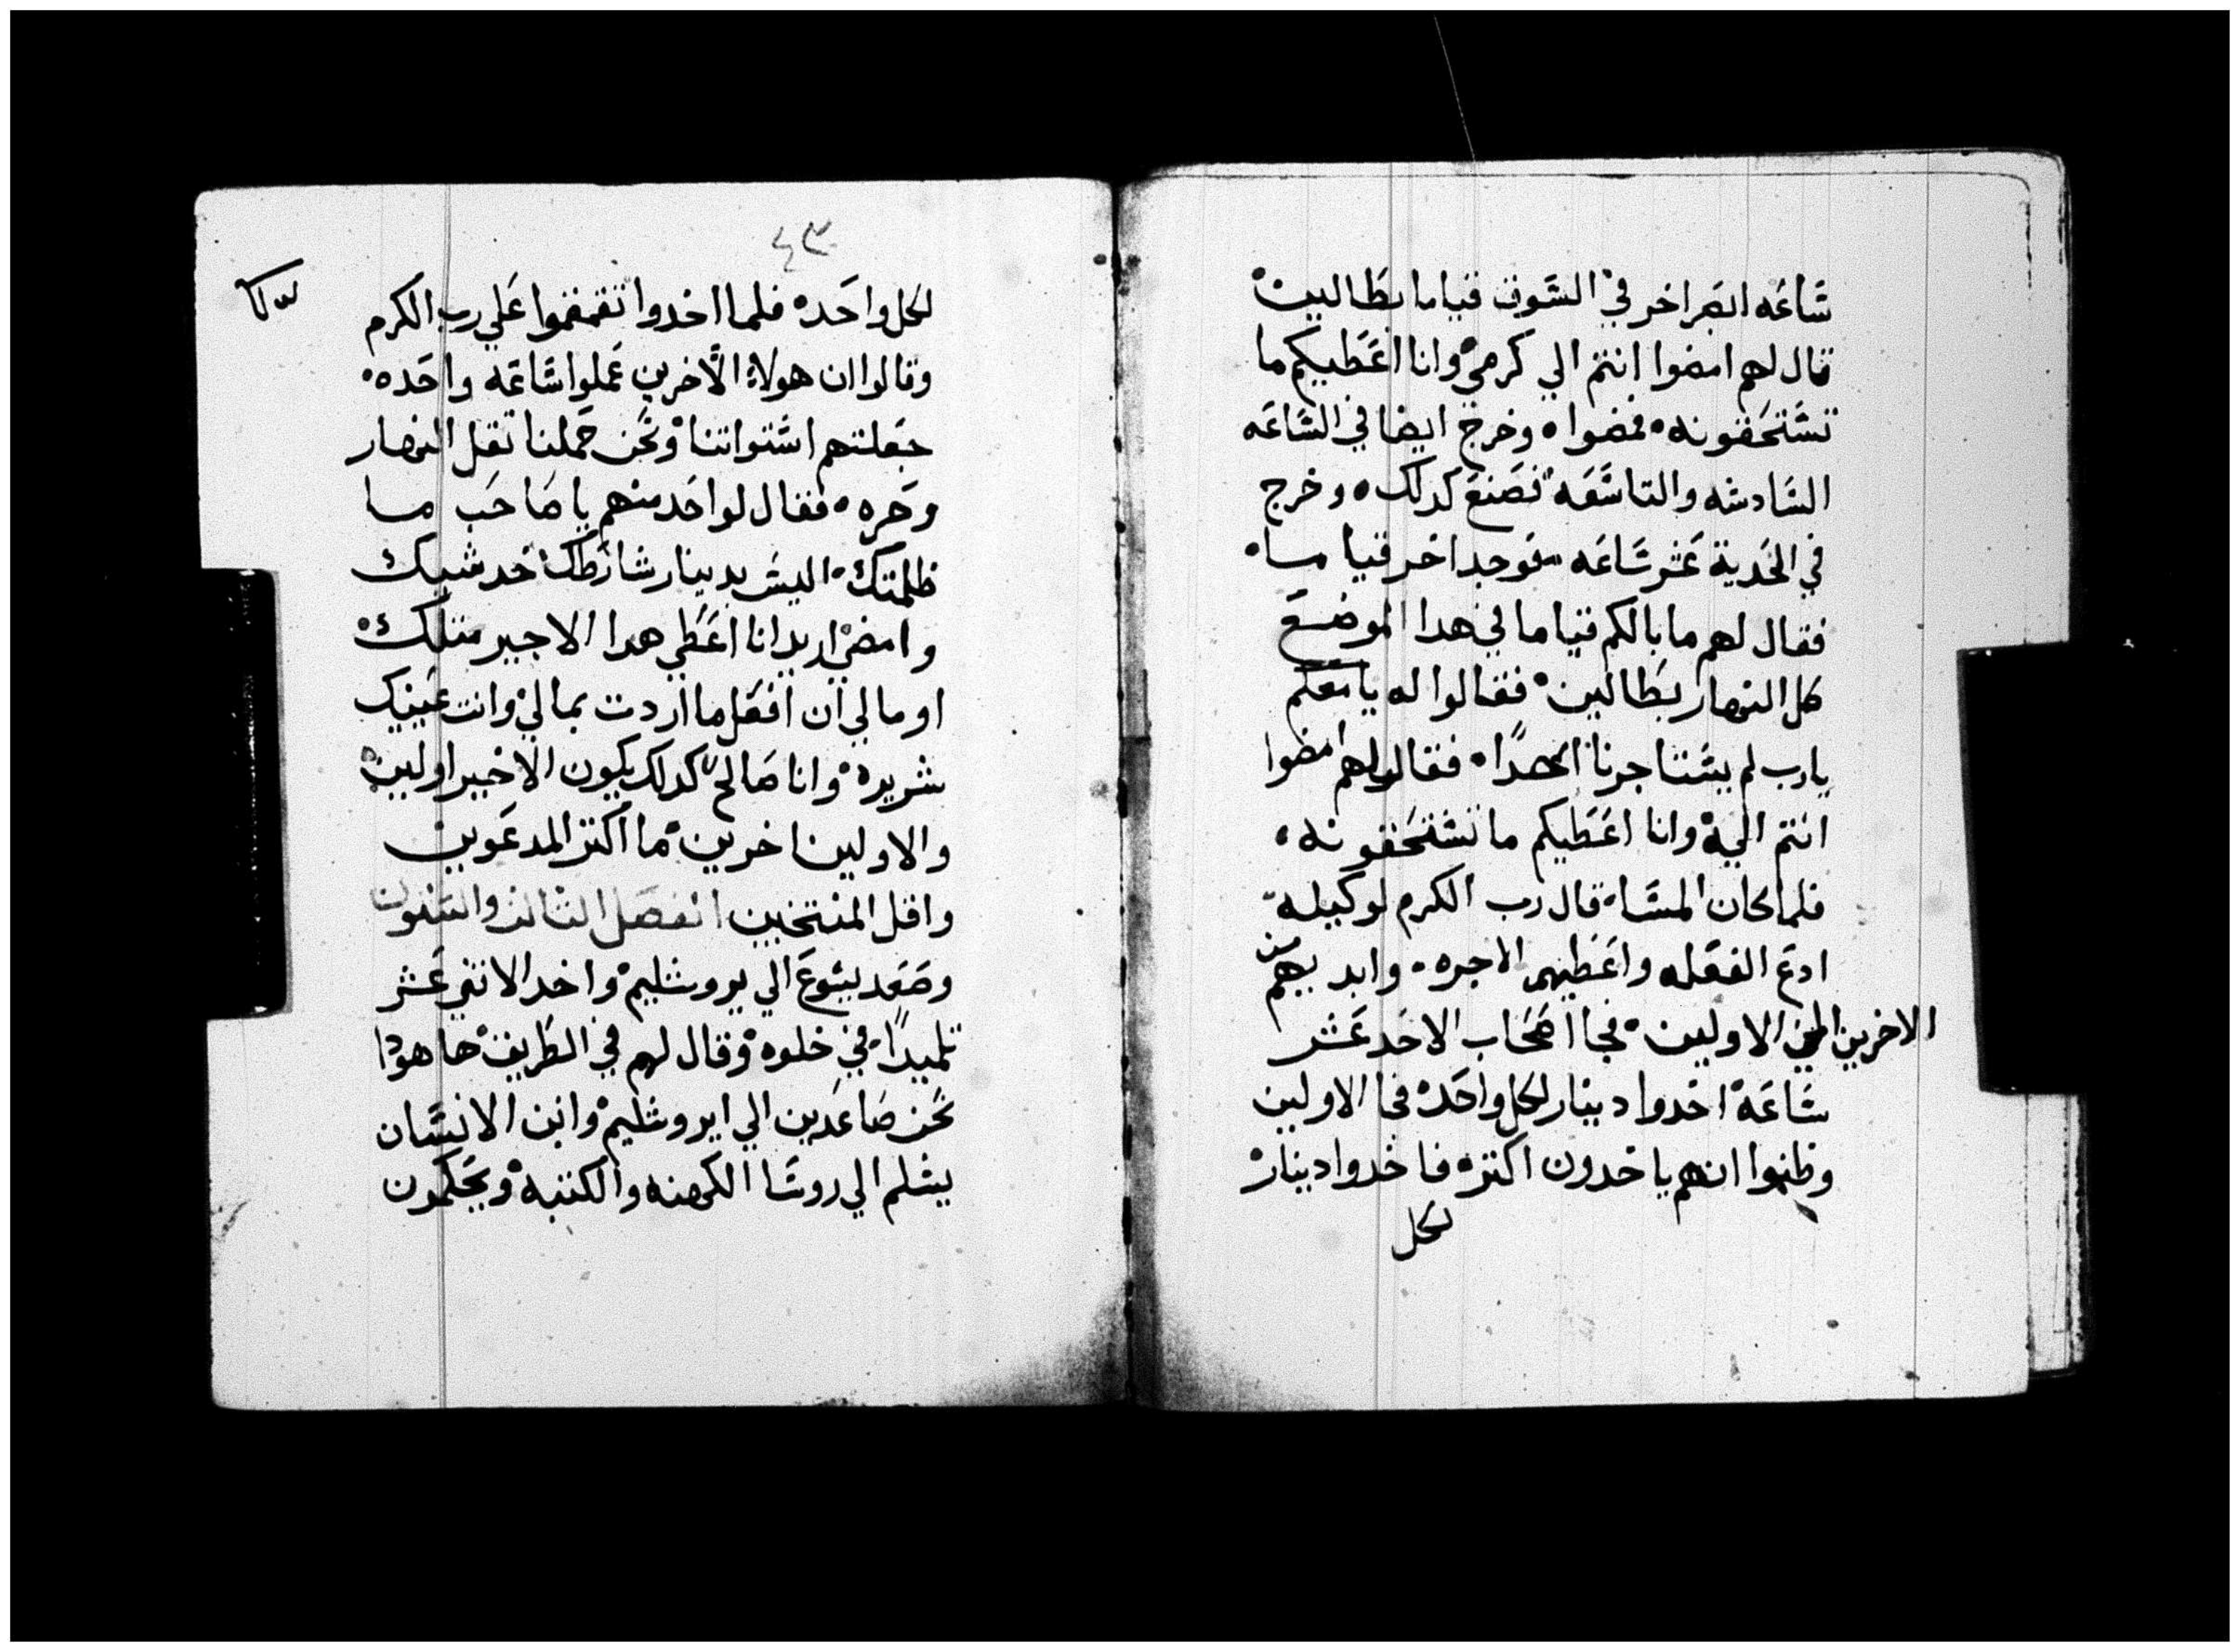 شاعه ابصر اخر في السوق قياما بطالين
قال لهم امضوا انتم الي كرمي وانا اعطيكم ما
تستحقونه فمضوا وخرج ايضا في الساعه
السادسه والتاسعه فصنع كدلك وخرج
في الحدية عشر ساعه فوجد اخر قياما
فقال لهم ما بالكم قياما في هدا الموضع
كل النهار بطالين فقالوا له يا معلم
يارب لم يستاجرنا احدا فقال لهم امضوا
انتم الي وانا اعطيكم ما تستحقونه
فلما كان المساء قال رب الكرم لوكيله
ادع الفعله واعطيهم الاجره وابد بهم من
الاخرين الي الاولين فجا اصحاب الاحد عشر
ساعة اخدوا دينار لكل واحد فجا الاولين
وظنوا انهم ياخدون اكتر فاخدوا دينار
لكل
٤٣
لكل واحد فلما اخدوا تقمقموا علي رب الكرم
وقالوا ان هولاء الاخرين عملوا ساعه واحده
جعلتهم اسوتنا ونحن حملنا تقل النهار
وحره فقال لواحد منهم يا صاحب ما
ظلمتك اليس بدينار شارطتك خد شيك
وامضي اريد انا اعطي هدا الاجير متلك
او ما لي ان افعل ما اردت بمالي وانت عينيك
شريرة وانا صالح كدلك يكون الاخير اولين
والاولين اخرين ما اكتر المدعوين
واقل المنتخبين الفصل التالت والستون
وصعد يسوع الي يروشليم واخد الاتني عشر
تلميدا في خلوه وقال لهم في الطريق ها هودا
نحن صاعدين الي ايروشليم وابن الانسان
يسلم الي روسا الكهنه والكتبه ويحكمون